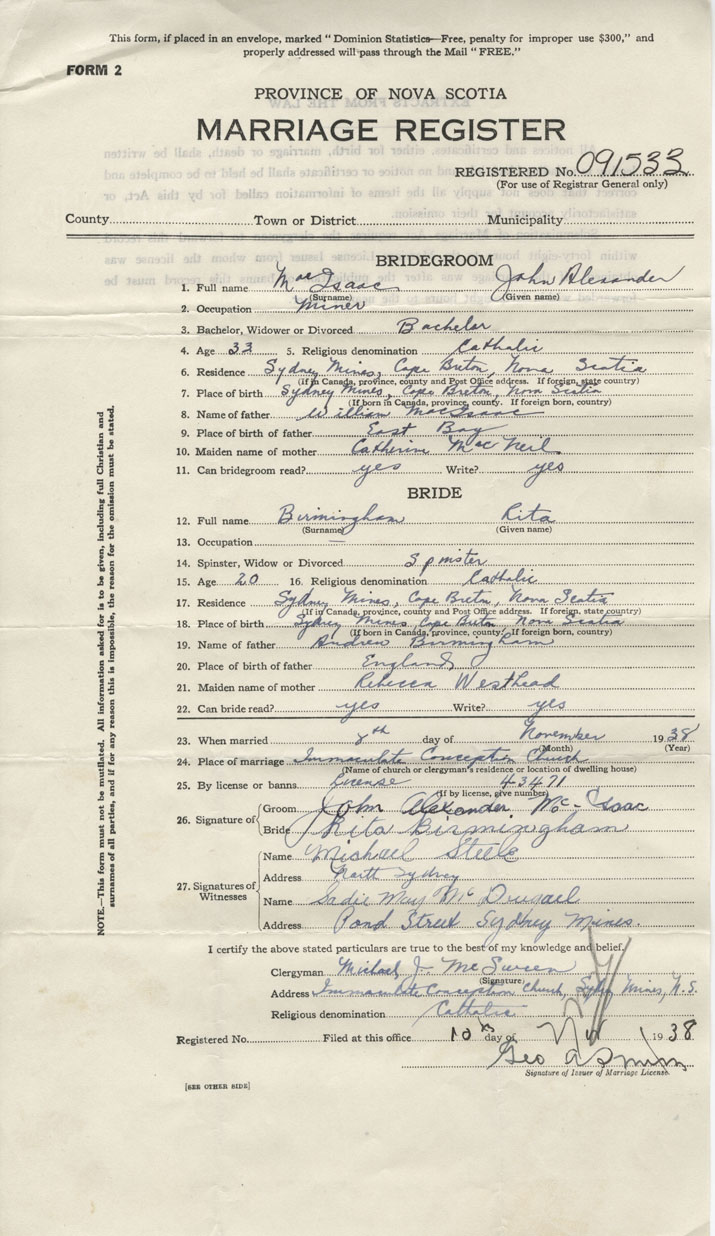 This form, if placed in an envelope, marked "Dominion Statistics—Free, penalty for improper use $300," and
properly addressed will pass through the Mail "FREE."
FORM 2
PROVINCE OF NOVA SCOTIA
MARRIAGE REGISTER
REGISTERED No. 091533
(For use of Registrar General only)
County Town or District Municipality
BRIDEGROOM
1. Full name MacIsaac John Alexander
(Surname) (Given name)
2. Occupation Miner
3. Bachelor, Widower or Divorced Bachelor
4. Age 33 5. Religious denomination Catholic
6. Residence Sydney Mines, Cape Breton, Nova Scotia
(If in Canada, province, county and Post Office address. If foreign, state country)
7. Place of birth Sydney Mines, Cape Breton, Nova Scotia
(If born in Canada, province, county. If foreign born, country)
8. Name of father William MacIsaac
9. Place of birth of father East Bay
10. Maiden name of mother Catherine MacNeil
11. Can bridegroom read? yes Write? yes
BRIDE
12. Full name Birmingham Rita
(Surname) (Given name)
13. Occupation —
14. Spinster, Widow or Divorced Spinster
15. Age 20 16. Religious denomination Catholic
17. Residence Sydney Mines, Cape Breton, Nova Scotia
(If in Canada, province, county and Post Office address. If foreign, state country)
18. Place of birth Sydney Mines, Cape Breton, Nova Scotia
(If born in Canada, province, county. If foreign born, country)
19. Name of father Andrew Birmingham
20. Place of birth of father England
21. Maiden name of mother Rebecca Westhead
22. Can bride read? yes Write? yes
23. When married 8th day of November 1938
(Month) (Year)
24. Place of marriage Immaculate Conception Church
(Name of church or clergyman's residence or location of dwelling house)
25. By license or banns License 43471
(If by license, give number)
26. Signature of Groom John Alexander Mc-Isaac
Bride Rita Birmingham
27. Signatures of Witnesses Name Michael Steele
Address North Sydney
Name Sadie May Mc
Address Pond Street Sydney Mines.
I certify the above stated particulars are true to the best of my knowledge and belief.
Clergyman Michael J.
(Signature)
Address Immaculate Conception Church, Sydney Mines, N.S.
Religious denomination Catholic
Registered No. Filed at this office 10th day of Nov 1938
Geo
Signature of Issuer of Marriage License.
[SEE OTHER SIDE]
NOTE.—This form must not be mutilated. All information asked for is to be given, including full Christian and
surnames of all parties, and if for any reason this is impossible, the reason for the omission must be stated.